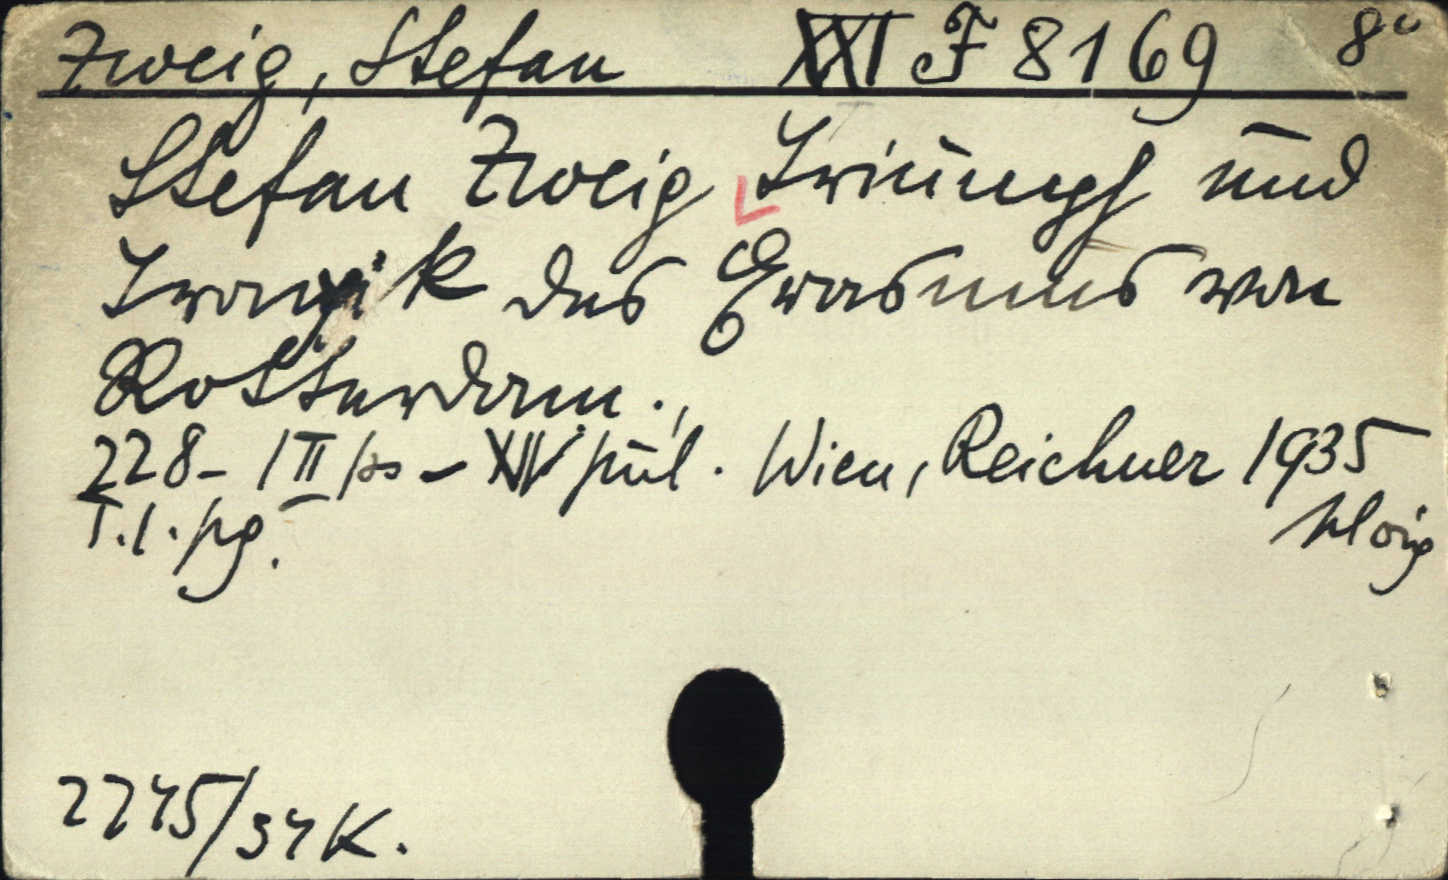 Zweig, Stefan XXI F 8169 8°
Stefan Zweig Triumph und
Tragik des Erasmus von
Rotterdam.,
228 - 1 II - XIV Wien, Reichner 1935
T.1.
2245/37 K.